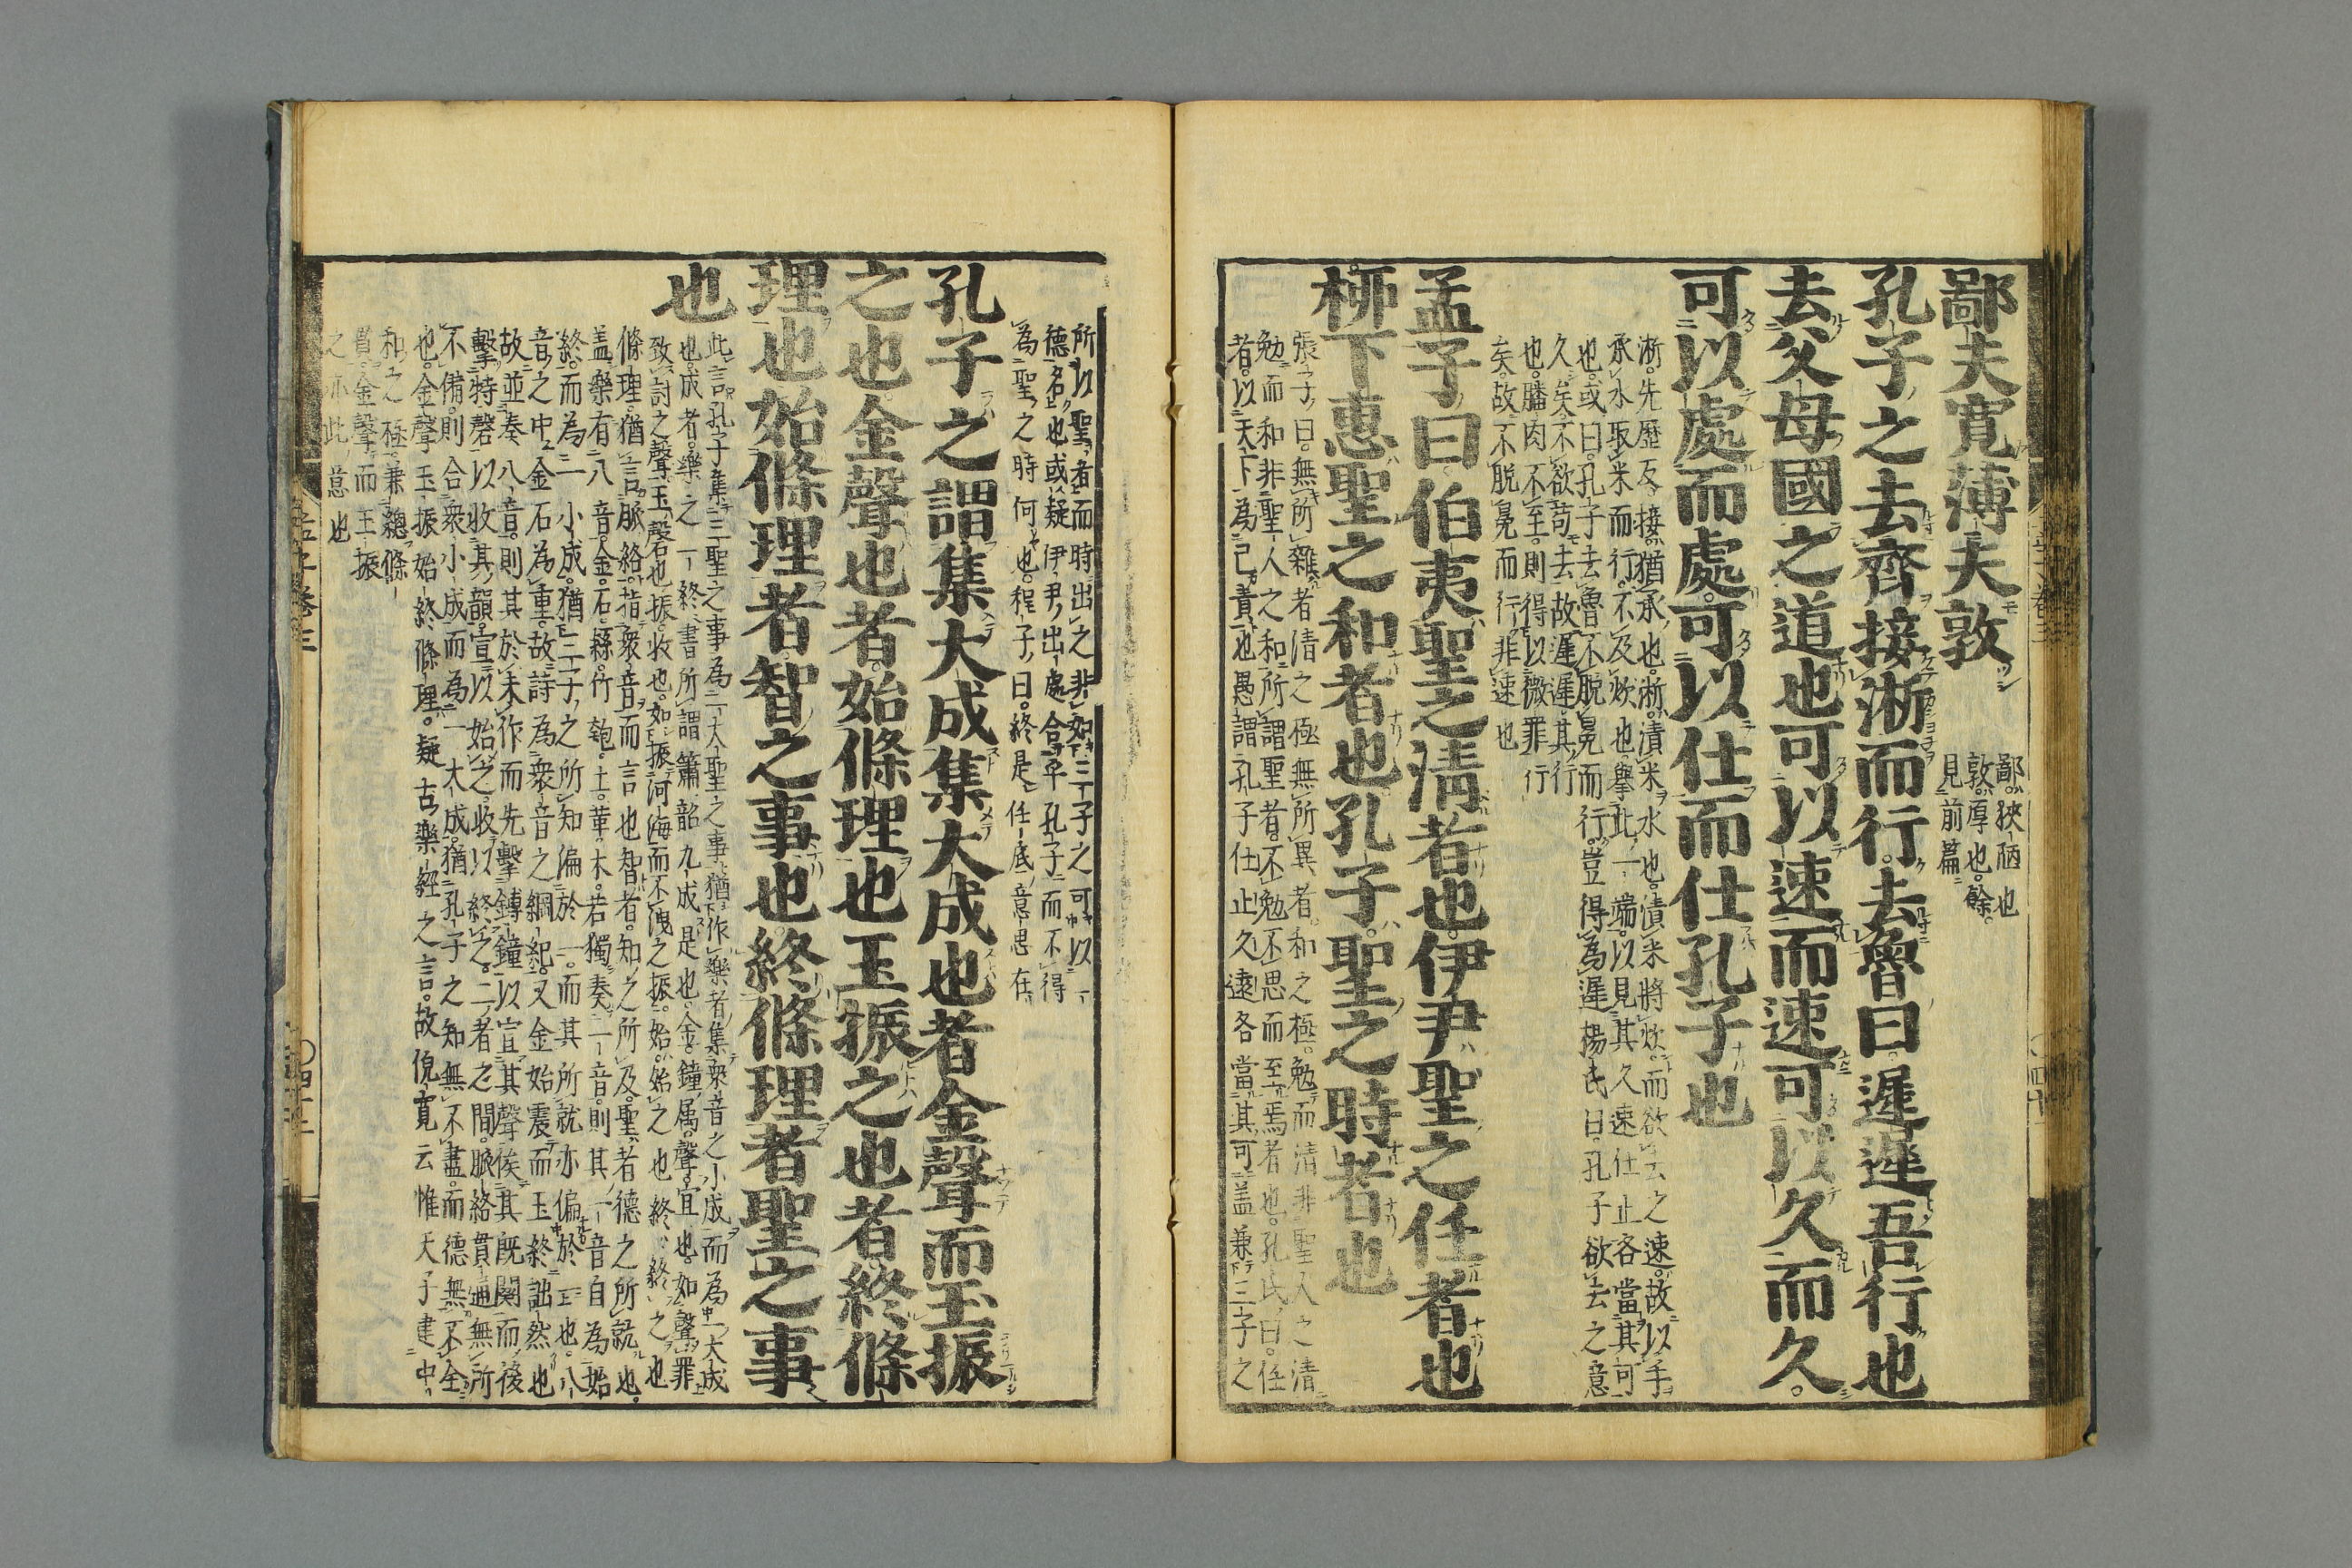 鄙夫寛薄夫敦
鄙。狹陋也
敦。厚也。餘。
見前篇
孔子之去齊接淅而行。去魯曰。遲遲吾行也
去父母國之道也可以速而速可以久而久。
可以處而處。可以仕而仕孔子也
淅。先歴反。接。猶承也。淅。漬米水也。漬米將炊。而欲去之速。故以手
承水取米而行。不及炊也。擧此一端。以見其久速仕止各當其可
也。或曰。孔子去魯不脱冕而行。豈得為遲楊氏曰。孔子欲去之意
久矣。不欲苟去。故遲遲其行
也。膰肉不至。則得以微罪行
矣。故不脱冕而行。非速也
孟子曰伯夷聖之清者也。伊尹聖之任者也
柳下惠聖之和者也孔子。聖之時者也
張子曰。無所雜者清之極無所異者。和之極。勉而清非聖人之清
勉而和非聖人之和所謂聖者。不勉不思而至焉者也。孔氏曰。任
者。以天下為己責也愚謂孔子仕止久速各當其可蓋兼三子之
所以聖者而時出之非如三子之可以一
德名也或疑伊尹出處合乎孔子而不得
為聖之時何也。程子曰。終是任底意思在
孔子之謂集大成集大成也者金聲而玉振
之也。金聲也者。始條理也玉振之也者。終條
理也始條理者智之事也。終條理者聖之事
也
此言孔子集三聖之事為一大聖之事猶作樂者集衆音之小成而為一大成
也。成者。樂之一終。書所謂簫韶九成是也。金。鐘屬。聲。宣也。如聲罪
致討之聲玉。磬也振。收也。如振河海而不洩之振。始。始之也終。終之也
條理。猶言脈絡。指衆音而言也智者。知之所及。聖者德之所就也。
蓋樂有八音。金。石。絲。竹匏。土。革木。若獨奏一音。則其一音自為始
終。而為一小成。猶三子之所知偏於一。而其所就亦偏於一也。八
音之中。金石為重。故特為衆音之綱紀。又金始震而玉終詘然也
故並奏八音。則其於未作而先擊鎛鐘以宣其聲俟其既闋而後
擊特磬以收其韻。宣以始之。收以終之。二者之間。脈絡貫通無所
不備。則合衆小成而為一大成。猶孔子之知無不盡。而德無不全
也。金聲玉振始終條理。疑古樂經之言。故倪寛云惟天子建中
和之極。兼總條
貫。金聲而玉振
之亦此意也